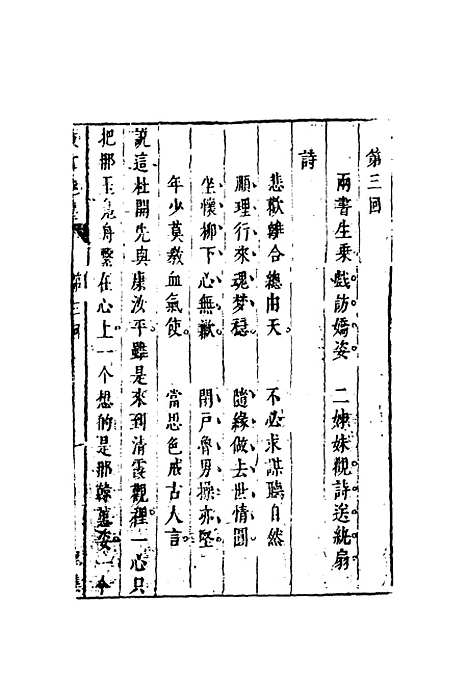 第三回
兩書生乗戲訪嬌姿　二姊妹觀詩送紈扇
詩
悲歡離合總由天　不必求謀聽自然
順理行來魂夢穩　隨緣做去世情圓
坐懷柳下心無歉　閉戶魯男操亦堅
年少莫教血氣使　當思色戒古人言
說這杜開先與康汝平雖是來到清霞觀裡一心只
把那玉鳧舟繫在心上一个想的是那韓蕙姿一个
第三回